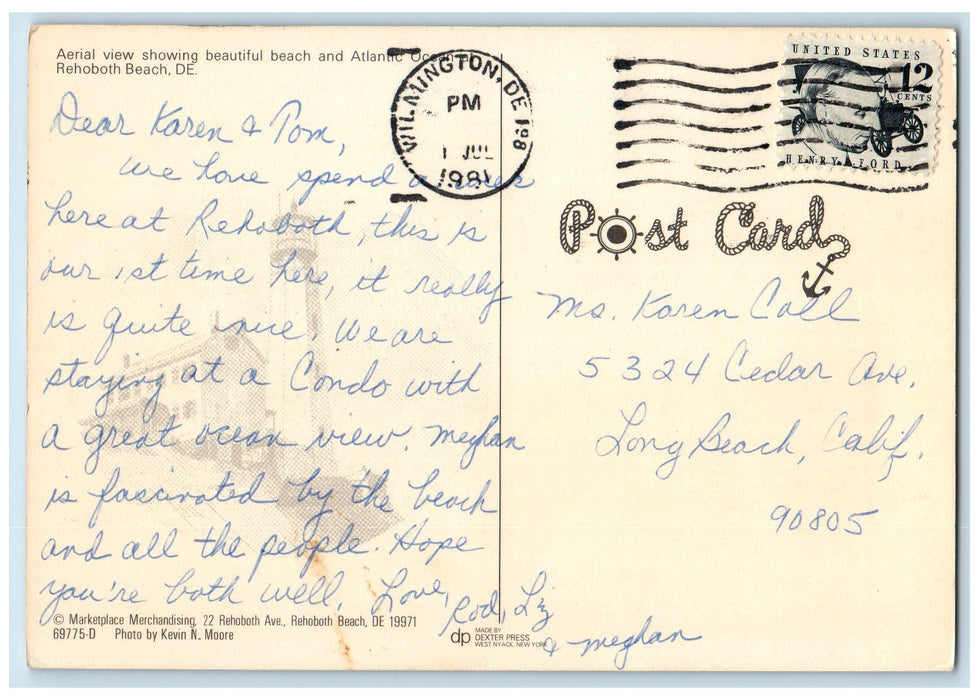 Aerial view showing beautiful beach and Atlantic Ocean at
Rehoboth Beach, DE.
WILMINGTON, DE 198
PM
1 JUL
1981
UNITED STATES
12
CENTS
HENRY FORD
Post Card
Dear Karen & Tom,
We have spend a week
here at Rehoboth, this is
our 1st time here, it really
is quite nice. We are
staying at a Condo with
a great ocean view. Meghan
is fascinated by the beach
and all the people. Hope
you're both well. Love,
Rod, Liz
& Meghan
Ms. Karen Call
5324 Cedar Ave.
Long Beach, Calif.
90805
© Marketplace Merchandising, 22 Rehoboth Ave., Rehoboth Beach, DE 19971
69775-D Photo by Kevin N. Moore
dp MADE BY
DEXTER PRESS
WEST NYACK, NEW YORK